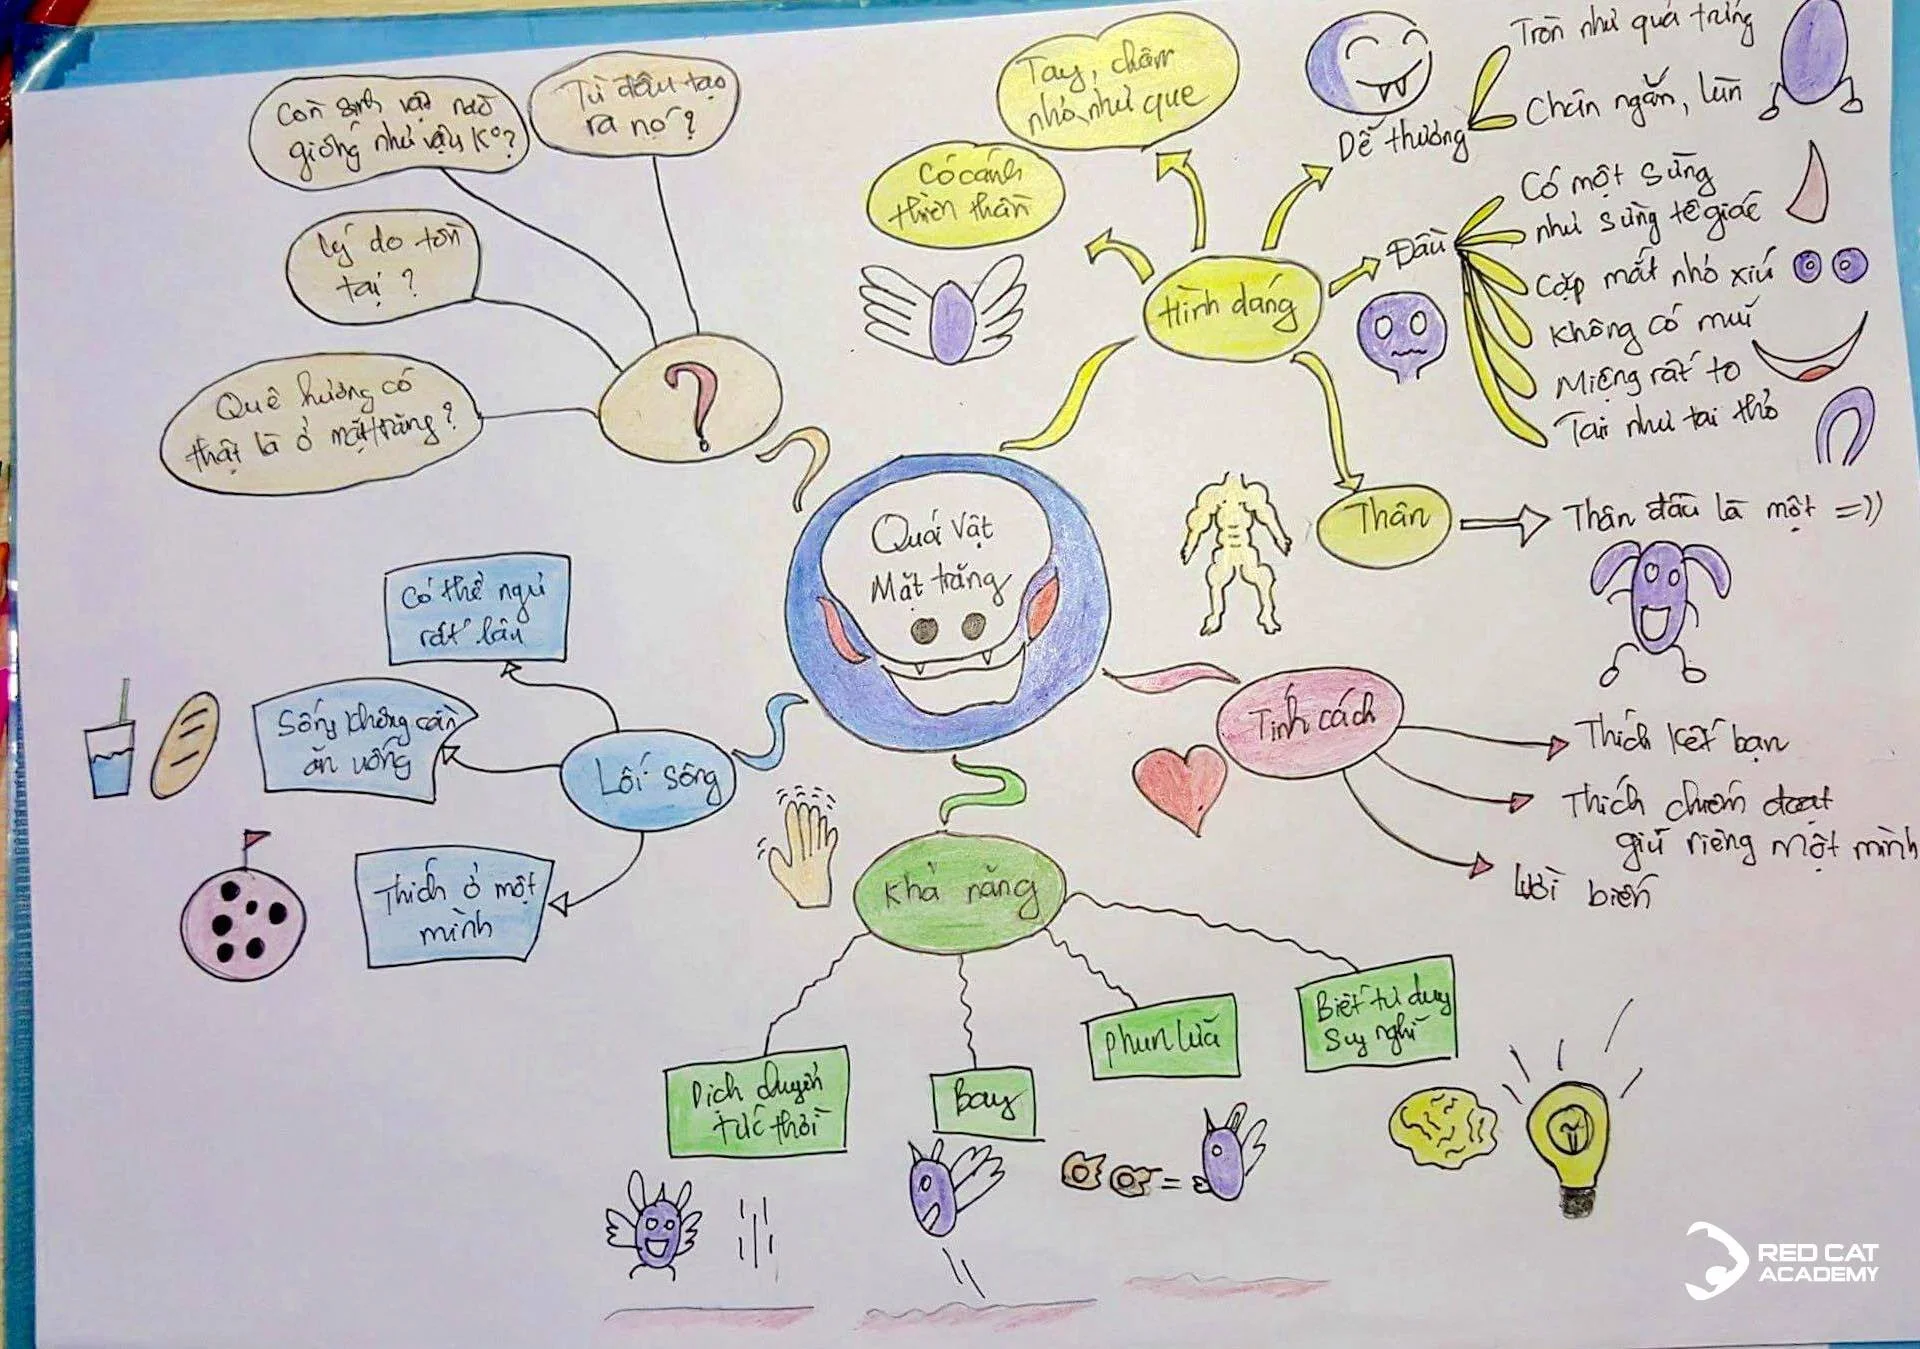 Con sinh vật nào
giống như vậy K°?
Từ đâu tạo
ra nó?
Lý do tồn
tại?
Quê hương có
thật là ở mặt trăng?
?
Tay, chân
nhỏ như que
Có cánh
thiên thần
Dễ thương
Tròn như quả trứng
Chân ngắn, lùn
Hình dáng
Đầu
Có một sừng
như sừng tê giác
Cặp mắt nhỏ xíu
Không có mũi
Miệng rất to
Tai như tai thỏ
Thân
Thân đầu là một =))
Quái vật
Mặt trăng
Có thể ngủ
rất lâu
Sống không cần
ăn uống
Lối sống
Thích ở một
mình
Tính cách
Thích kết bạn
Thích chiếm đoạt
giữ riêng một mình
Lười biến
Khả năng
Dịch chuyển
tức thời
Bay
Phun lửa
Biết tư duy
Suy nghĩ
=
RED CAT
ACADEMY